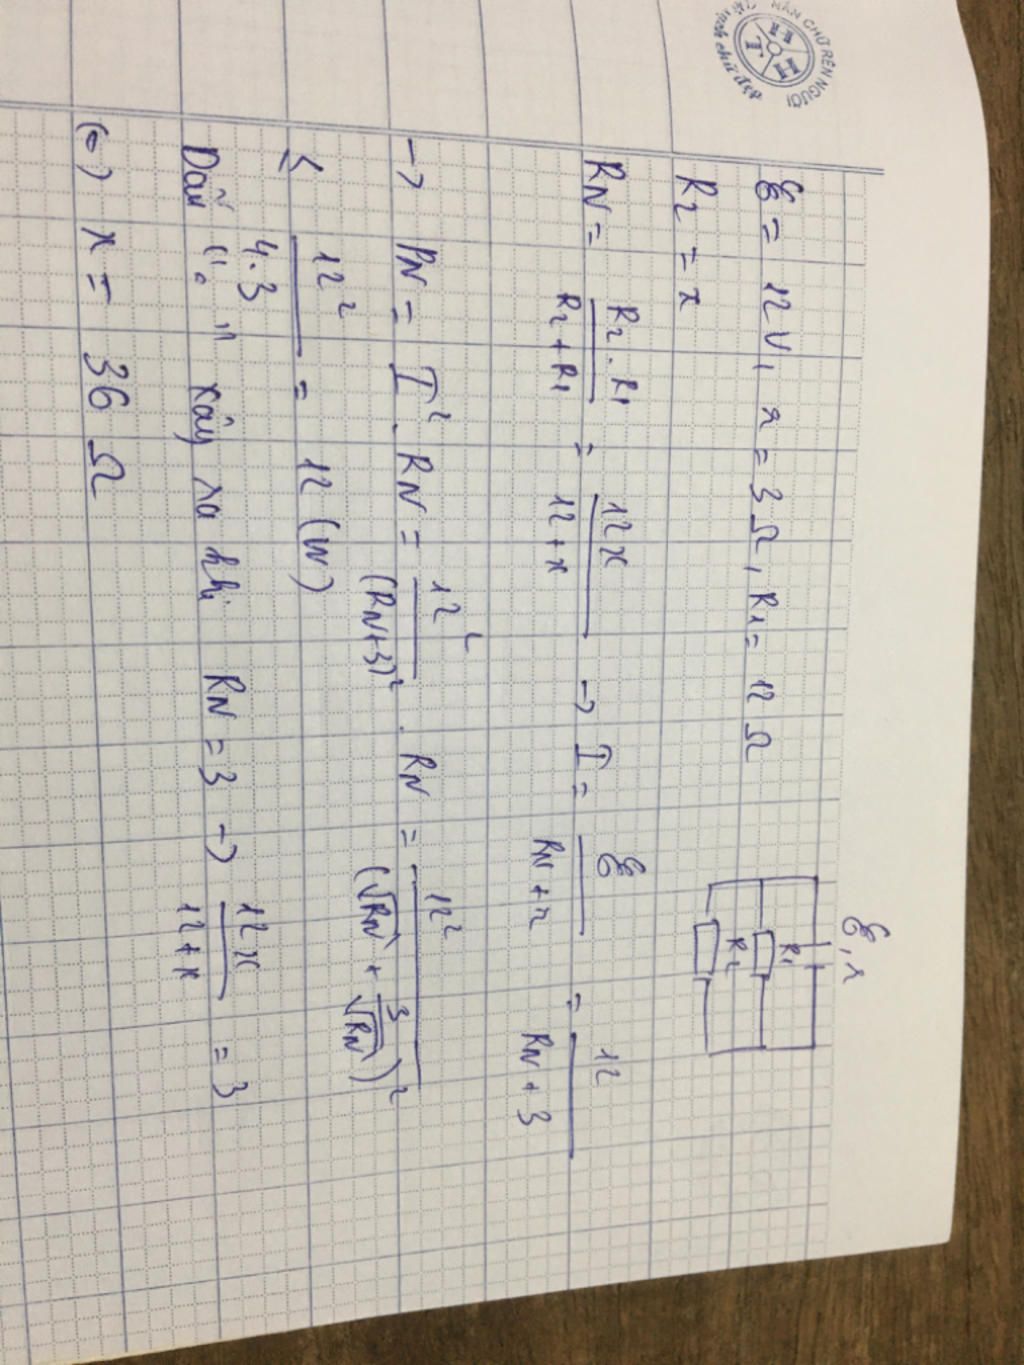 NẮN CHỮ RÈN NGƯỜI
HT
chữ đẹp
ℰ = 12V, r = 3Ω, R1 = 12Ω
ℰ, r
R1
R2
R2 = x
RN = R2 . R1 / R2 + R1 = 12x / 12 + x → I = ℰ / RN + r = 12 / RN + 3
→ PN = I² . RN = 12² / (RN+3)² . RN = 12² / (√RN + 3/√RN)²
≤ 12² / 4.3 = 12 (W)
Dấu "=" xảy ra khi RN = 3 → 12x / 12 + x = 3
(=) x = 36 Ω